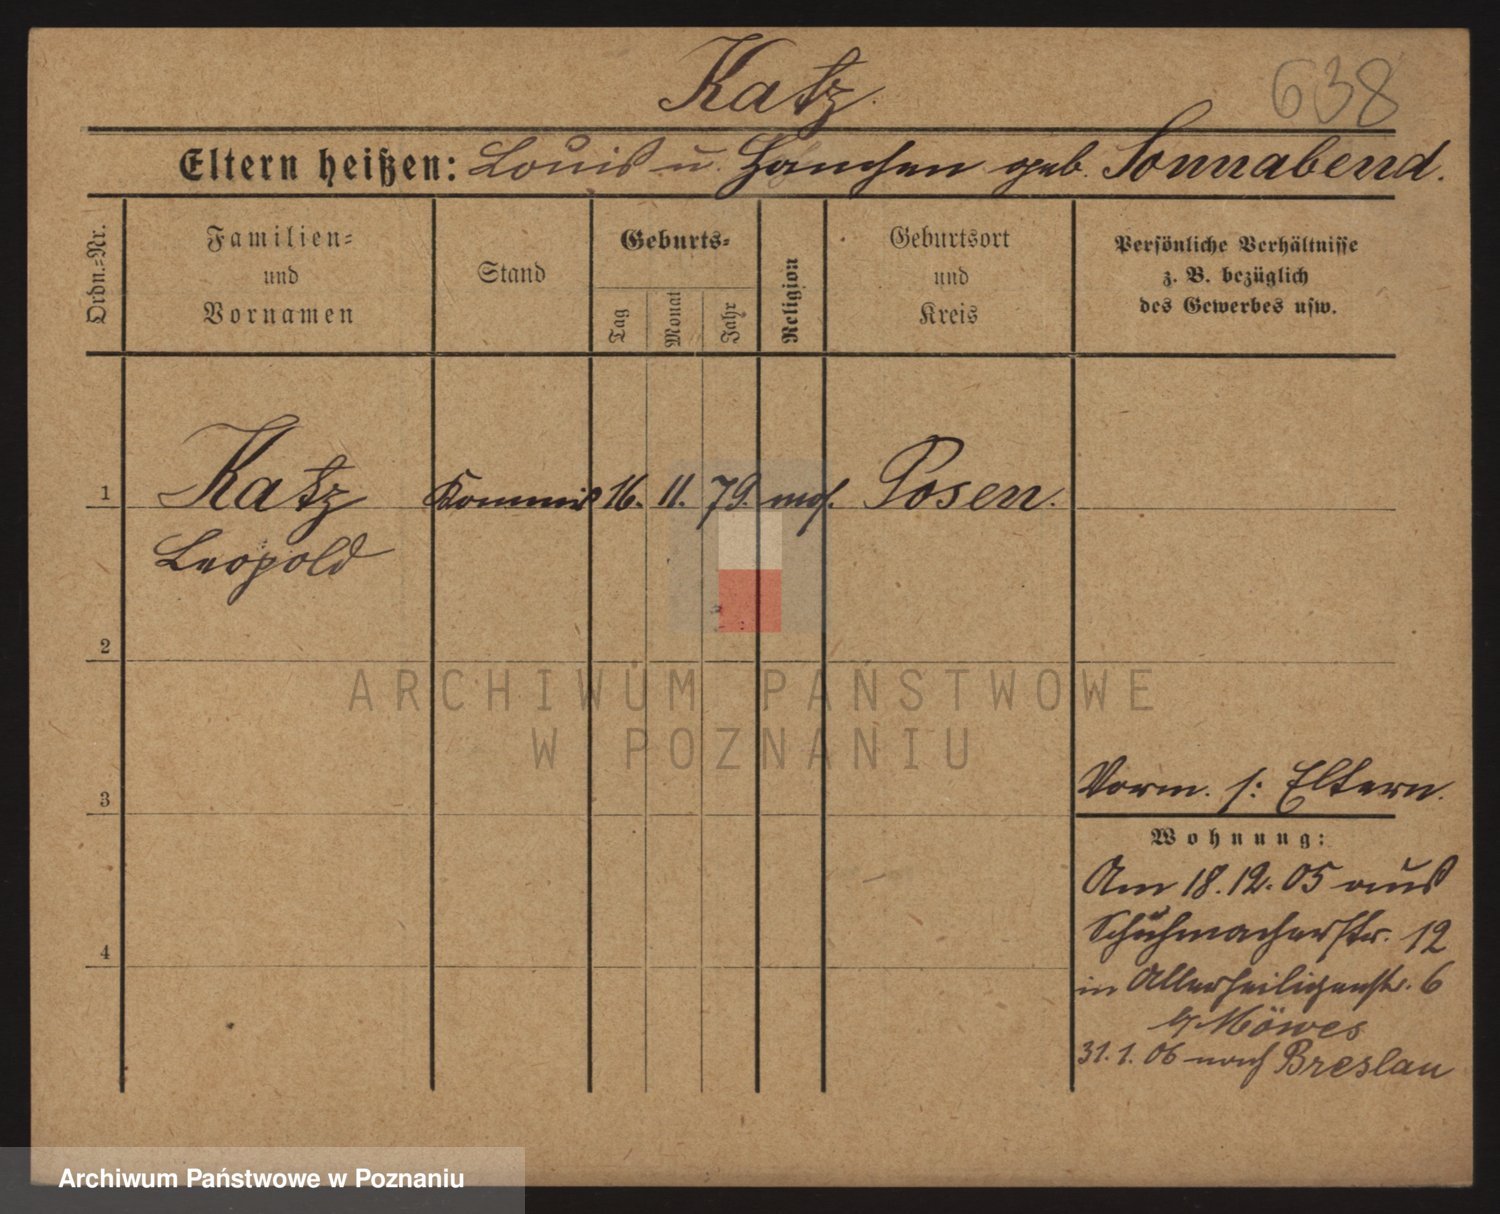 Katz.
638
Eltern heißen: Louis u. Hanchen geb. Sonnabend.
Ordn.=Nr.
Familien=
und
Vornamen
Stand
Geburts=
Tag
Monat
Jahr
Religion
Geburtsort
und
Kreis
Persönliche Verhältnisse
z. B. bezüglich
des Gewerbes usw.
1 Katz Kommis 16. 11. 79. mos. Posen.
Leopold
2
ARCHIWUM PAŃSTWOWE
W POZNANIU
3
Vorm. s: Eltern.
Wohnung:
Am 18.12.05 aus
Schuhmacherstr. 12
4
in Allerheiligenstr. 6
b/ Möwes
31.1.06 nach Breslau
Archiwum Państwowe w Poznaniu